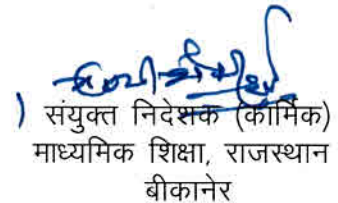 ) संयुक्त निदेशक (कार्मिक)
माध्यमिक शिक्षा, राजस्थान
बीकानेर